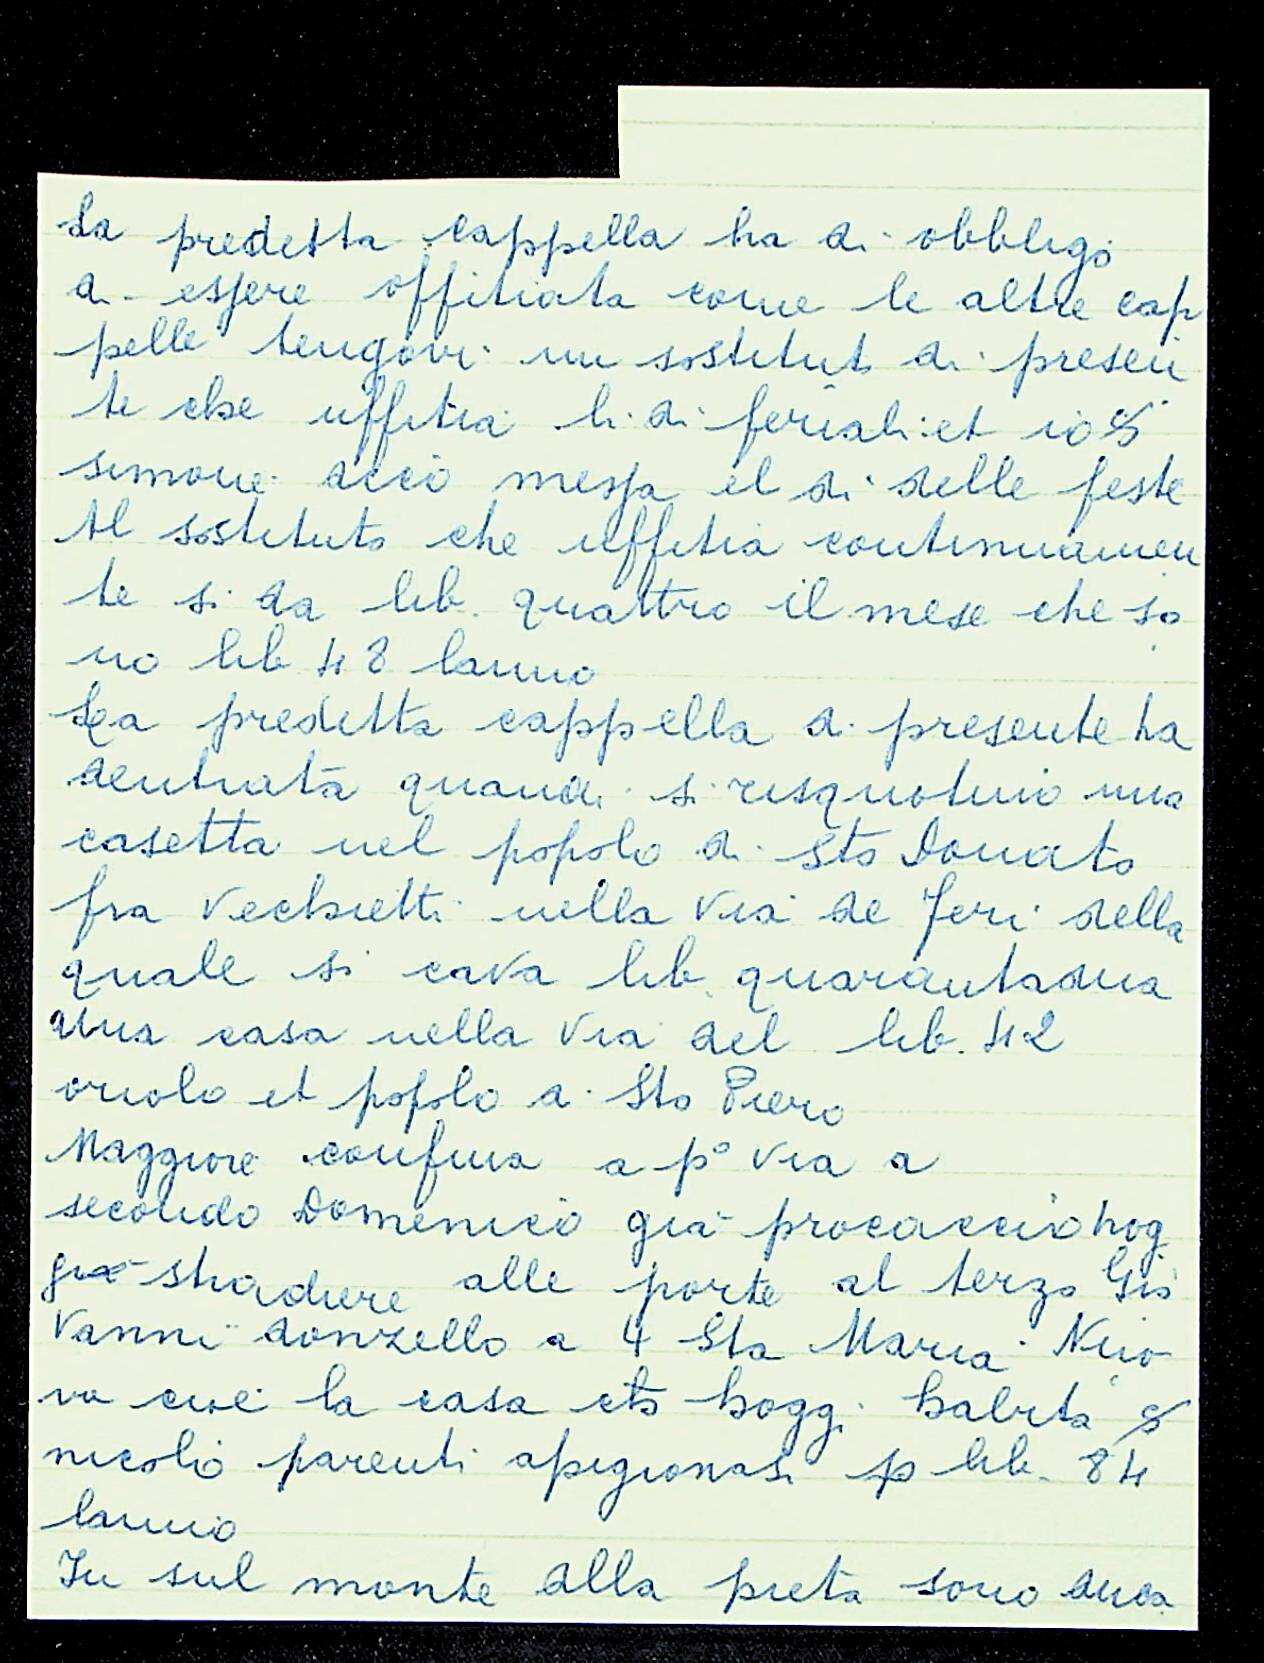 La predetta cappella ha di obbligo
di essere offitiata come le altre cap
pelle tengovi un sostituto di presen
te che uffitia li di feriali et io S
simone dico messa el di delle feste
Al sostituto che uffitia continuamen
te si da lib. quattro il mese che so
no lib 48 lanno
La predetta cappella di presente ha
dentrata quandi si risquotino una
casetta nel popolo di Sto Donato
fra Vechietti nella via de Feri della
quale si cava lib. quarantadua
una casa nella via del lib. 42
oriolo et popolo di Sto Piero
Maggiore confina a p° via a
secondo Domenico già procaccio hog
gi stradiere alle porte al terzo Gio
Vanni donzello a 4 Sta Maria Nuo
va cioè la casa et hoggi habita S
nicolò parenti apigionasi p lib. 84
lanno
In sul monte alla pieta sono duca